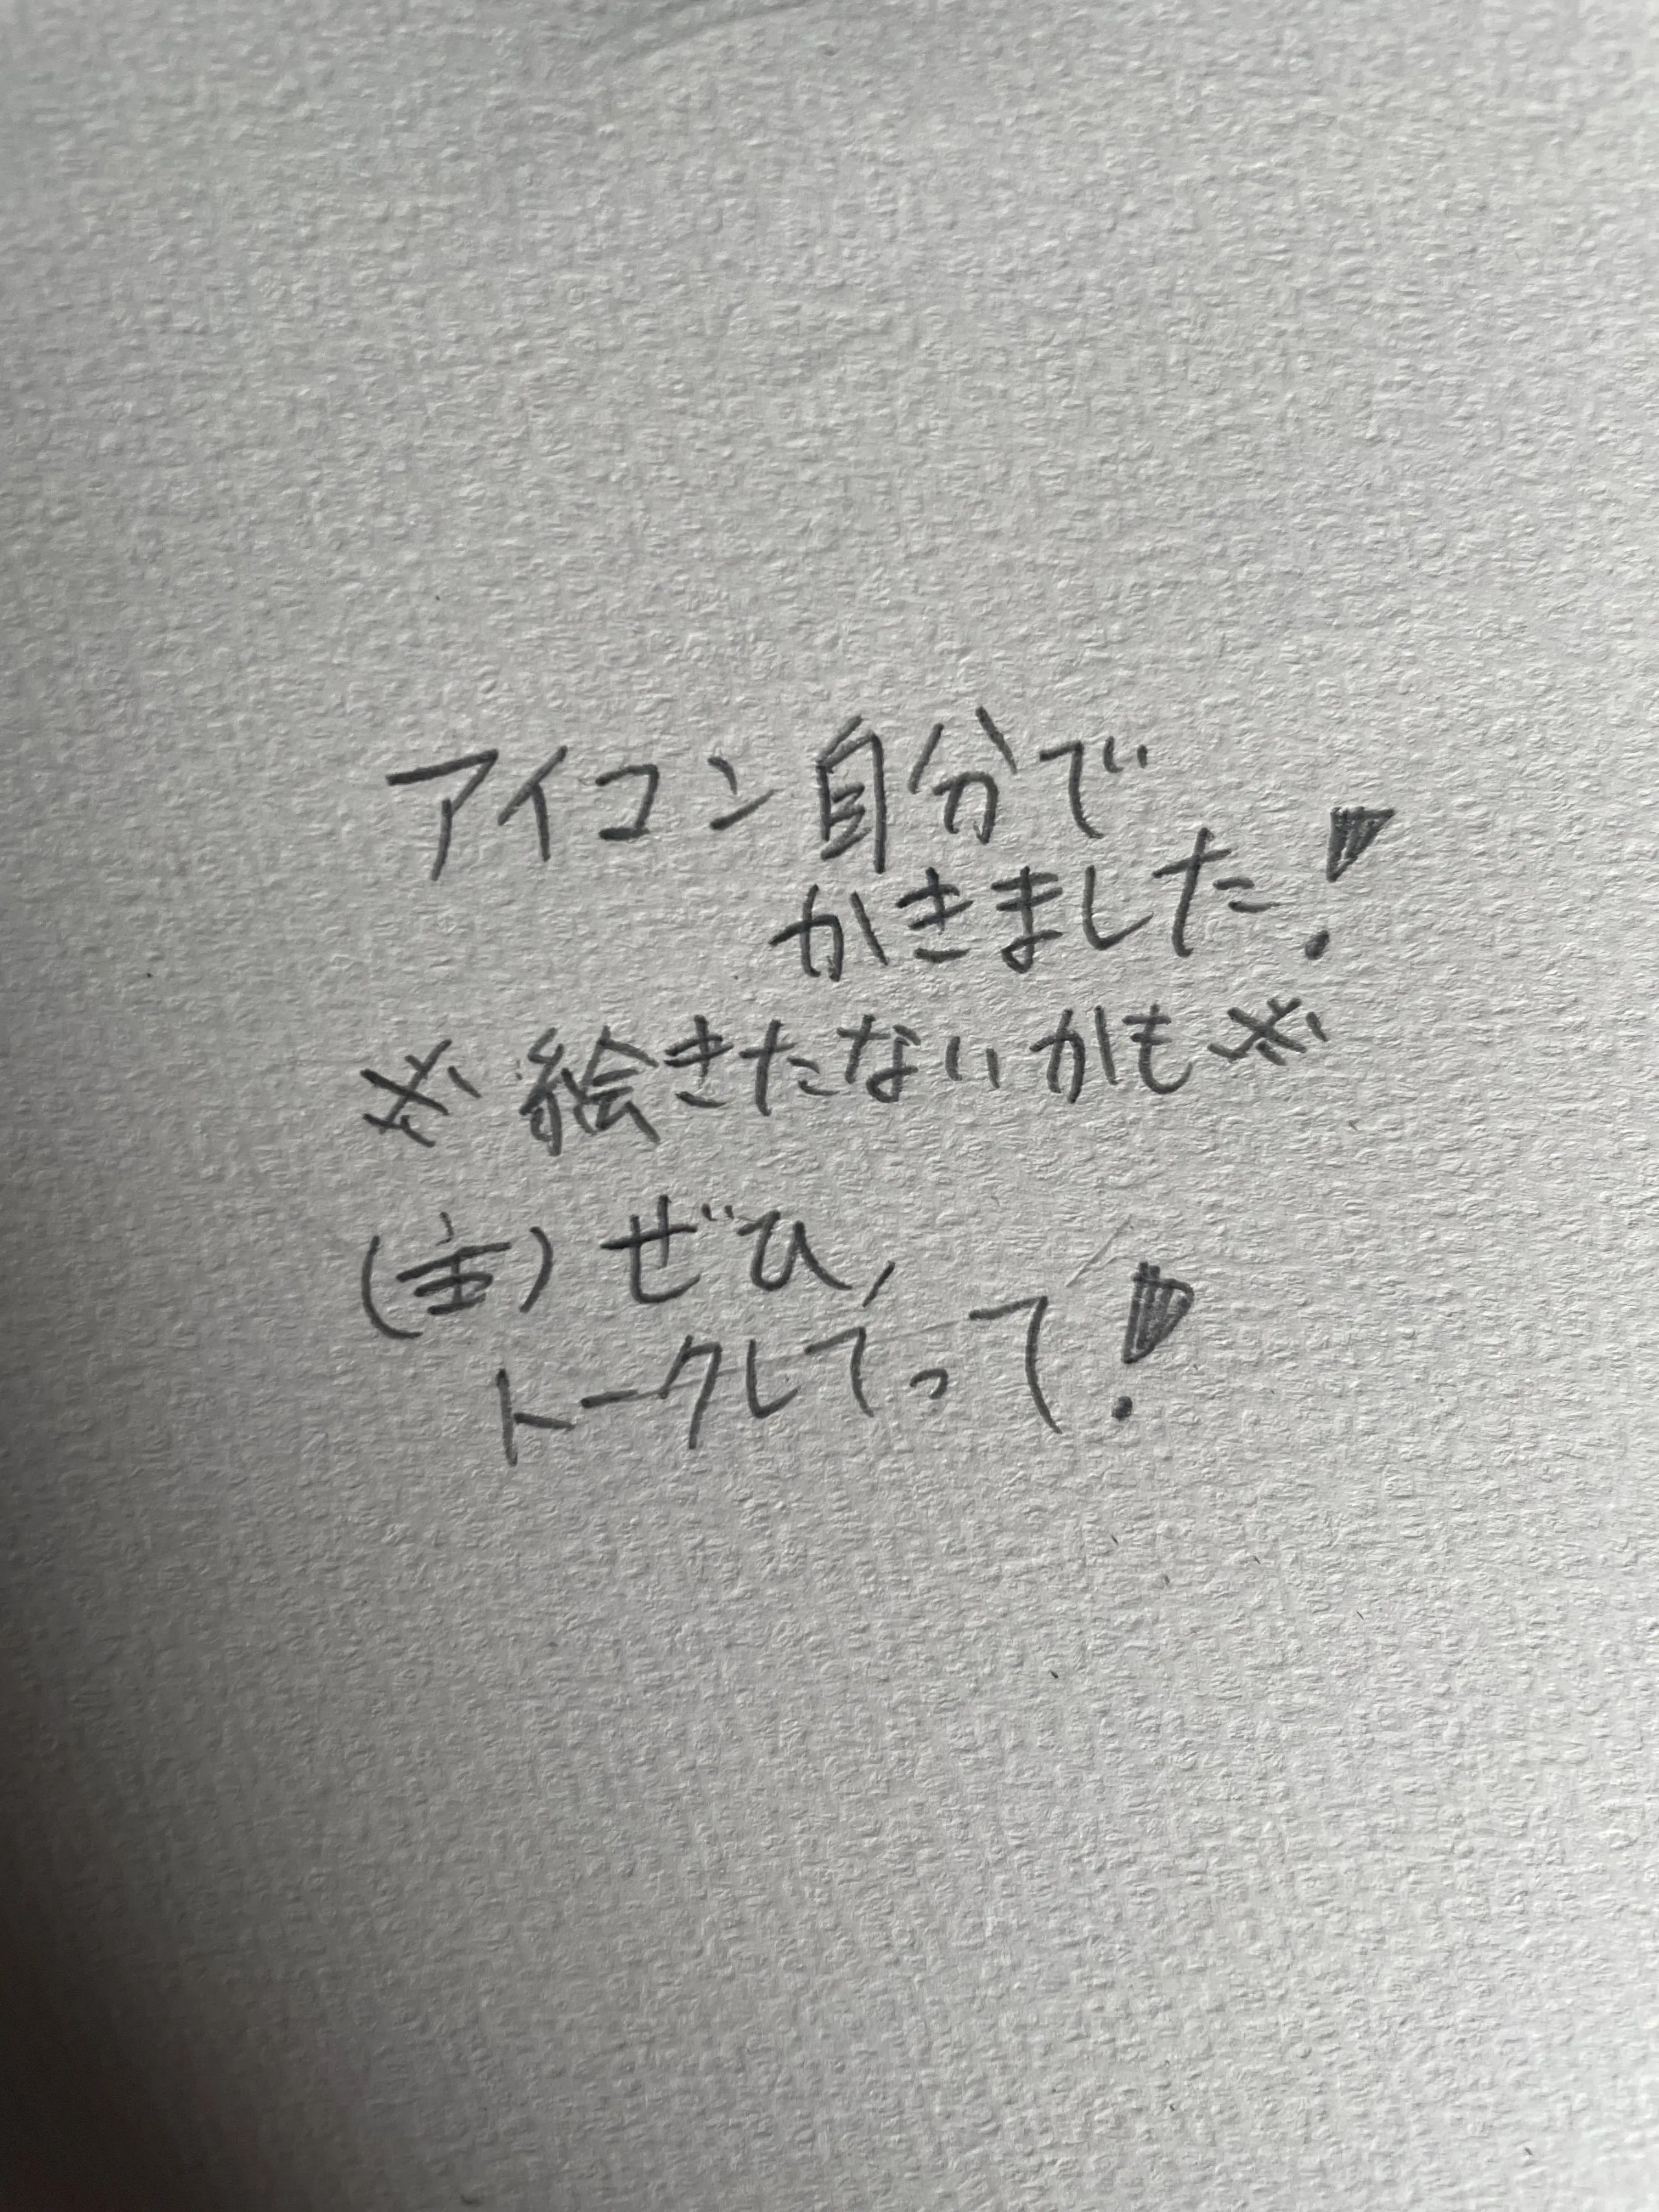 アイコン自分で
かきました!
※絵きたないかも※
(主)ぜひ,
トークしてって!